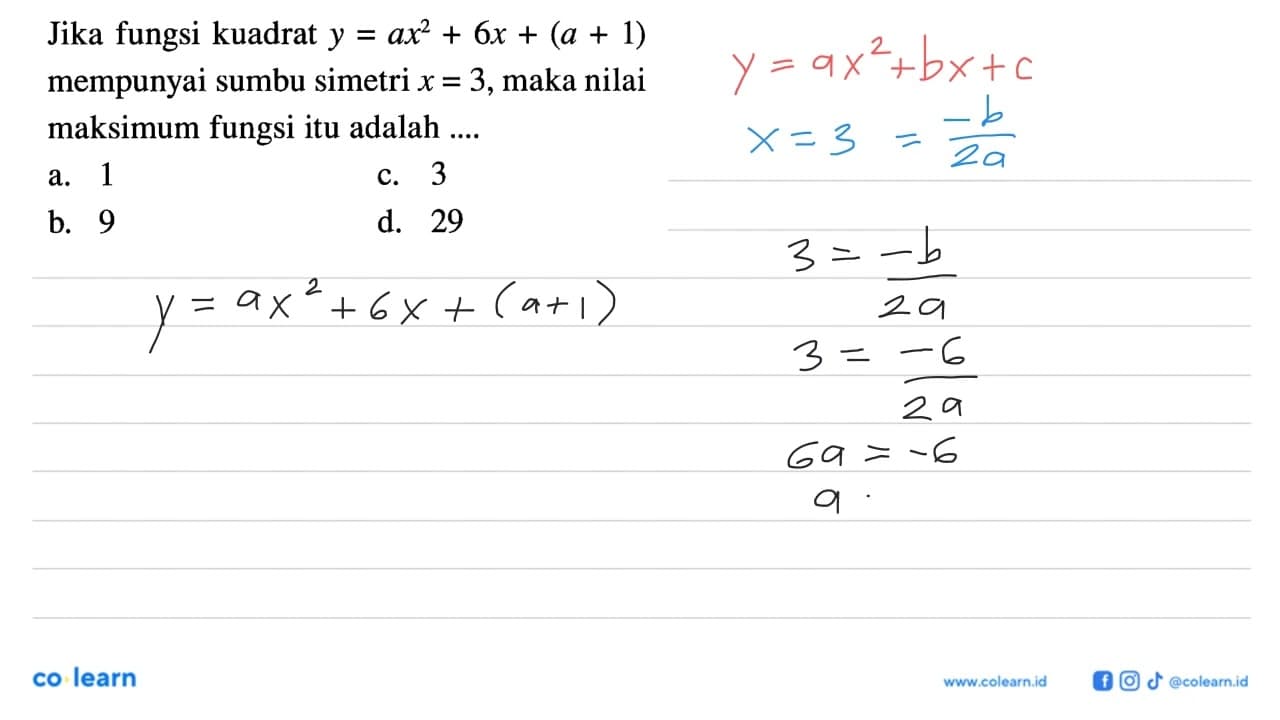 Jika fungsi kuadrat y = ax² + 6x + (a + 1)
mempunyai sumbu simetri x = 3, maka nilai
maksimum fungsi itu adalah ....
a. 1 c. 3
b. 9 d. 29
y = ax² + 6x + (a+1)
y = ax² + bx + c
x = 3 = -b/2a
3 = -b/2a
3 = -6/2a
6a = -6
a ·
co learn
www.colearn.id
@colearn.id